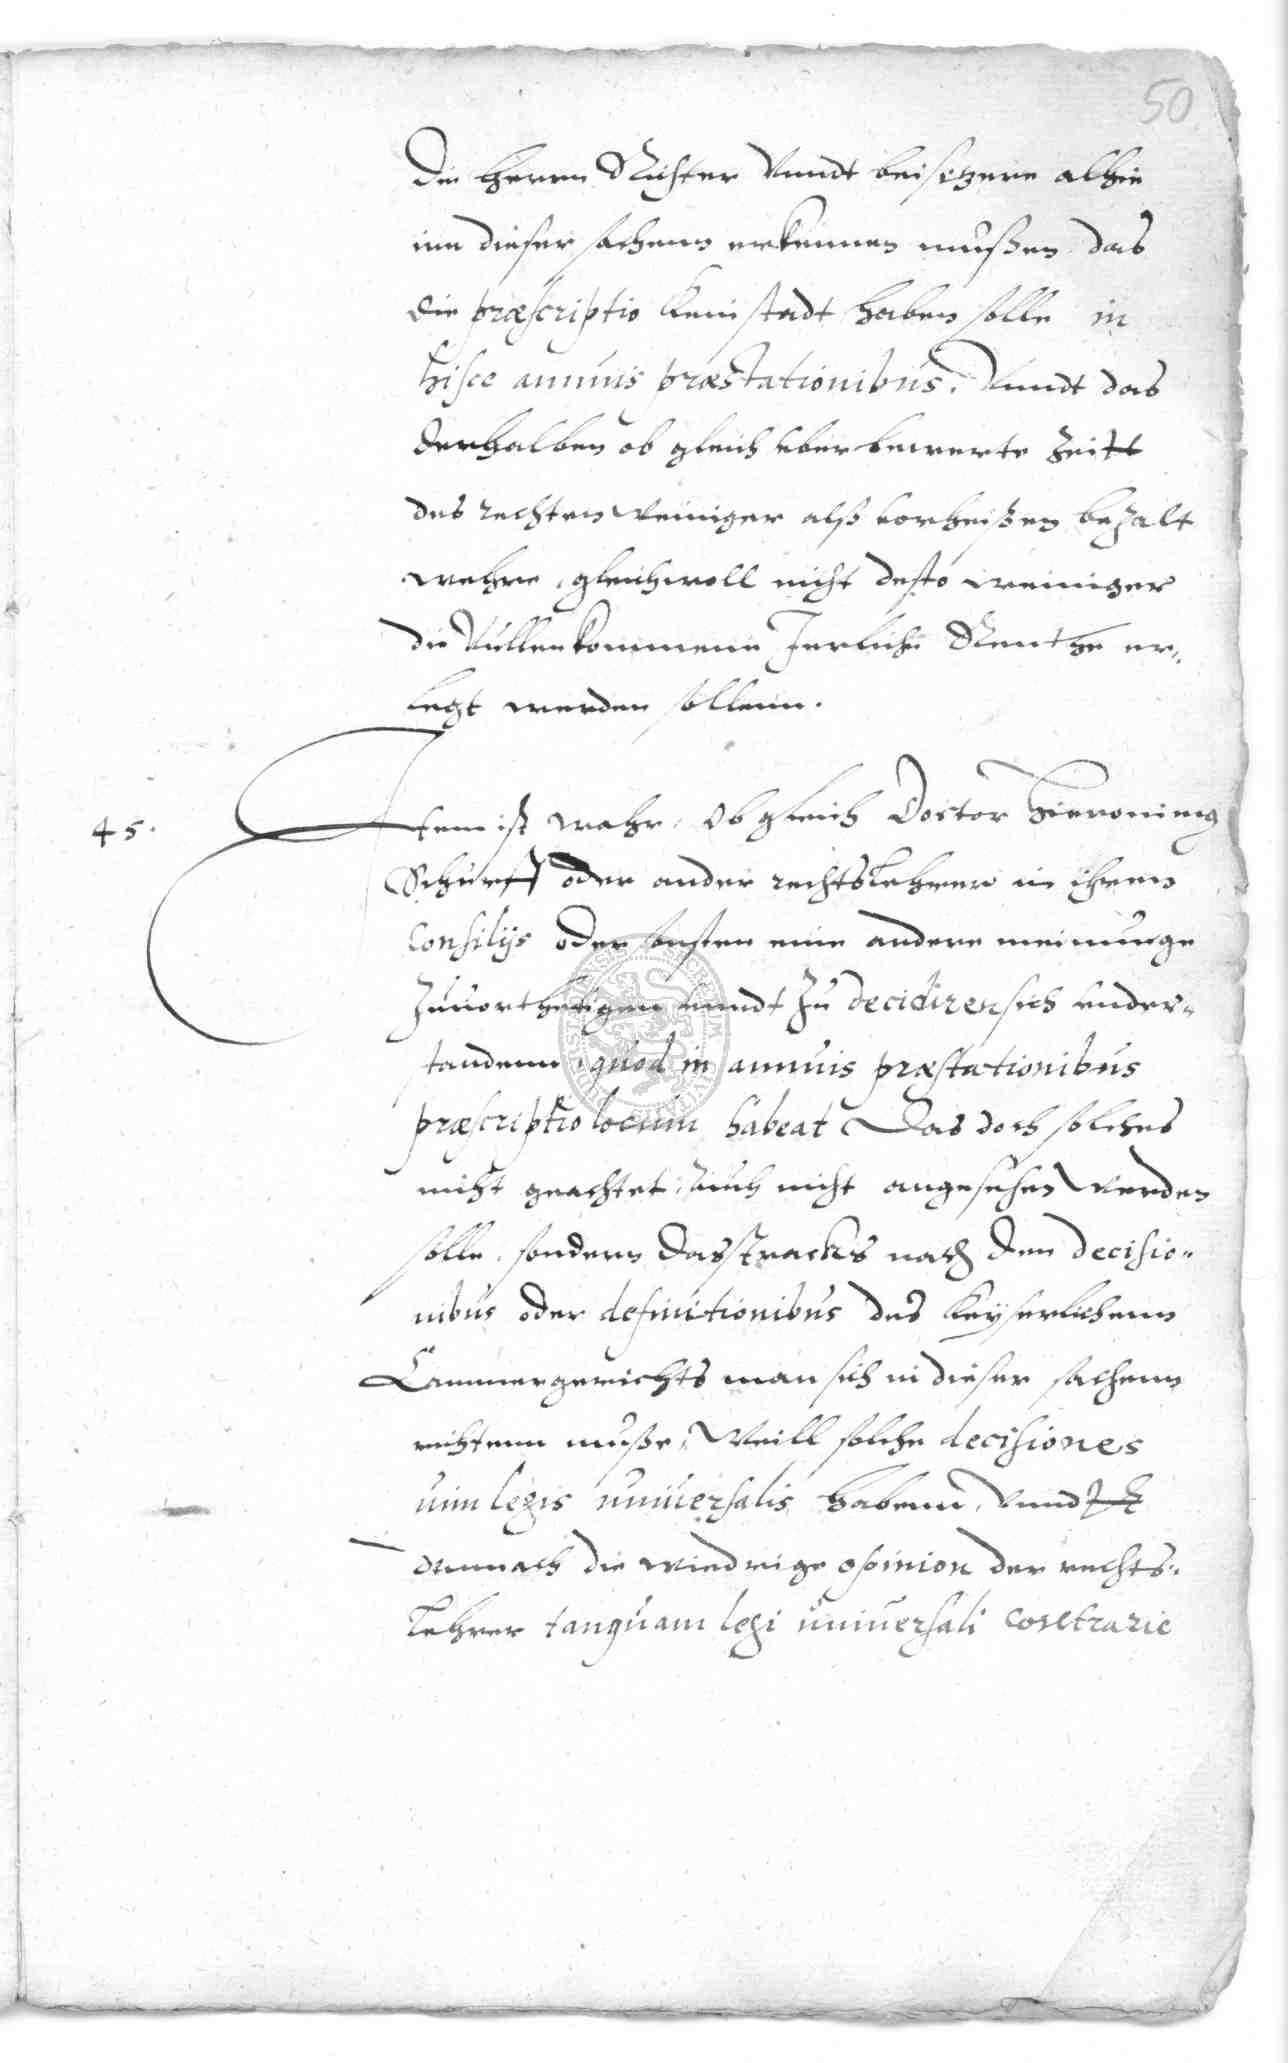 50
Die Herrn Richter Vnndt beisitzere alhie
inn dieser sachenn erkennen mußen das
die præscriptio kein stadt haben solle in
hisce annuis præstationibus. Vnndt das
derhalben ob gleich vber bewerte Zeitt
des rechten weiniger alß vorheißen bezalt
wehre, gleichwoll nicht desto weiniger
die Vullenkommene Jerliche Renthe er„
legt werden sollenn.
45. Item ist wahr, Ob gleich Doctor Hieronimus
Schurff oder ander rechtslehrer in ihren
Consilijs oder sonsten eine andere meinunge
Zuuorthetigen vnndt Zu decidiren sich vnder„
standenn, quod in annuis præstationibus
præscriptio locum habeat Das doch solches
nicht geachtet, Auch nicht angesehen werden
solle, sondern das stracks nach den decisio„
nibus oder definitionibus des Keyserlichenn
Cammergerichts man sich in dieser sachenn
richtenn muße, Weill solche decisiones
uim legis uniuersalis habenn, Vnndt
demnach die wiedrige opinion der rechts„
lehrer tanquam legi uniuersali contrarie